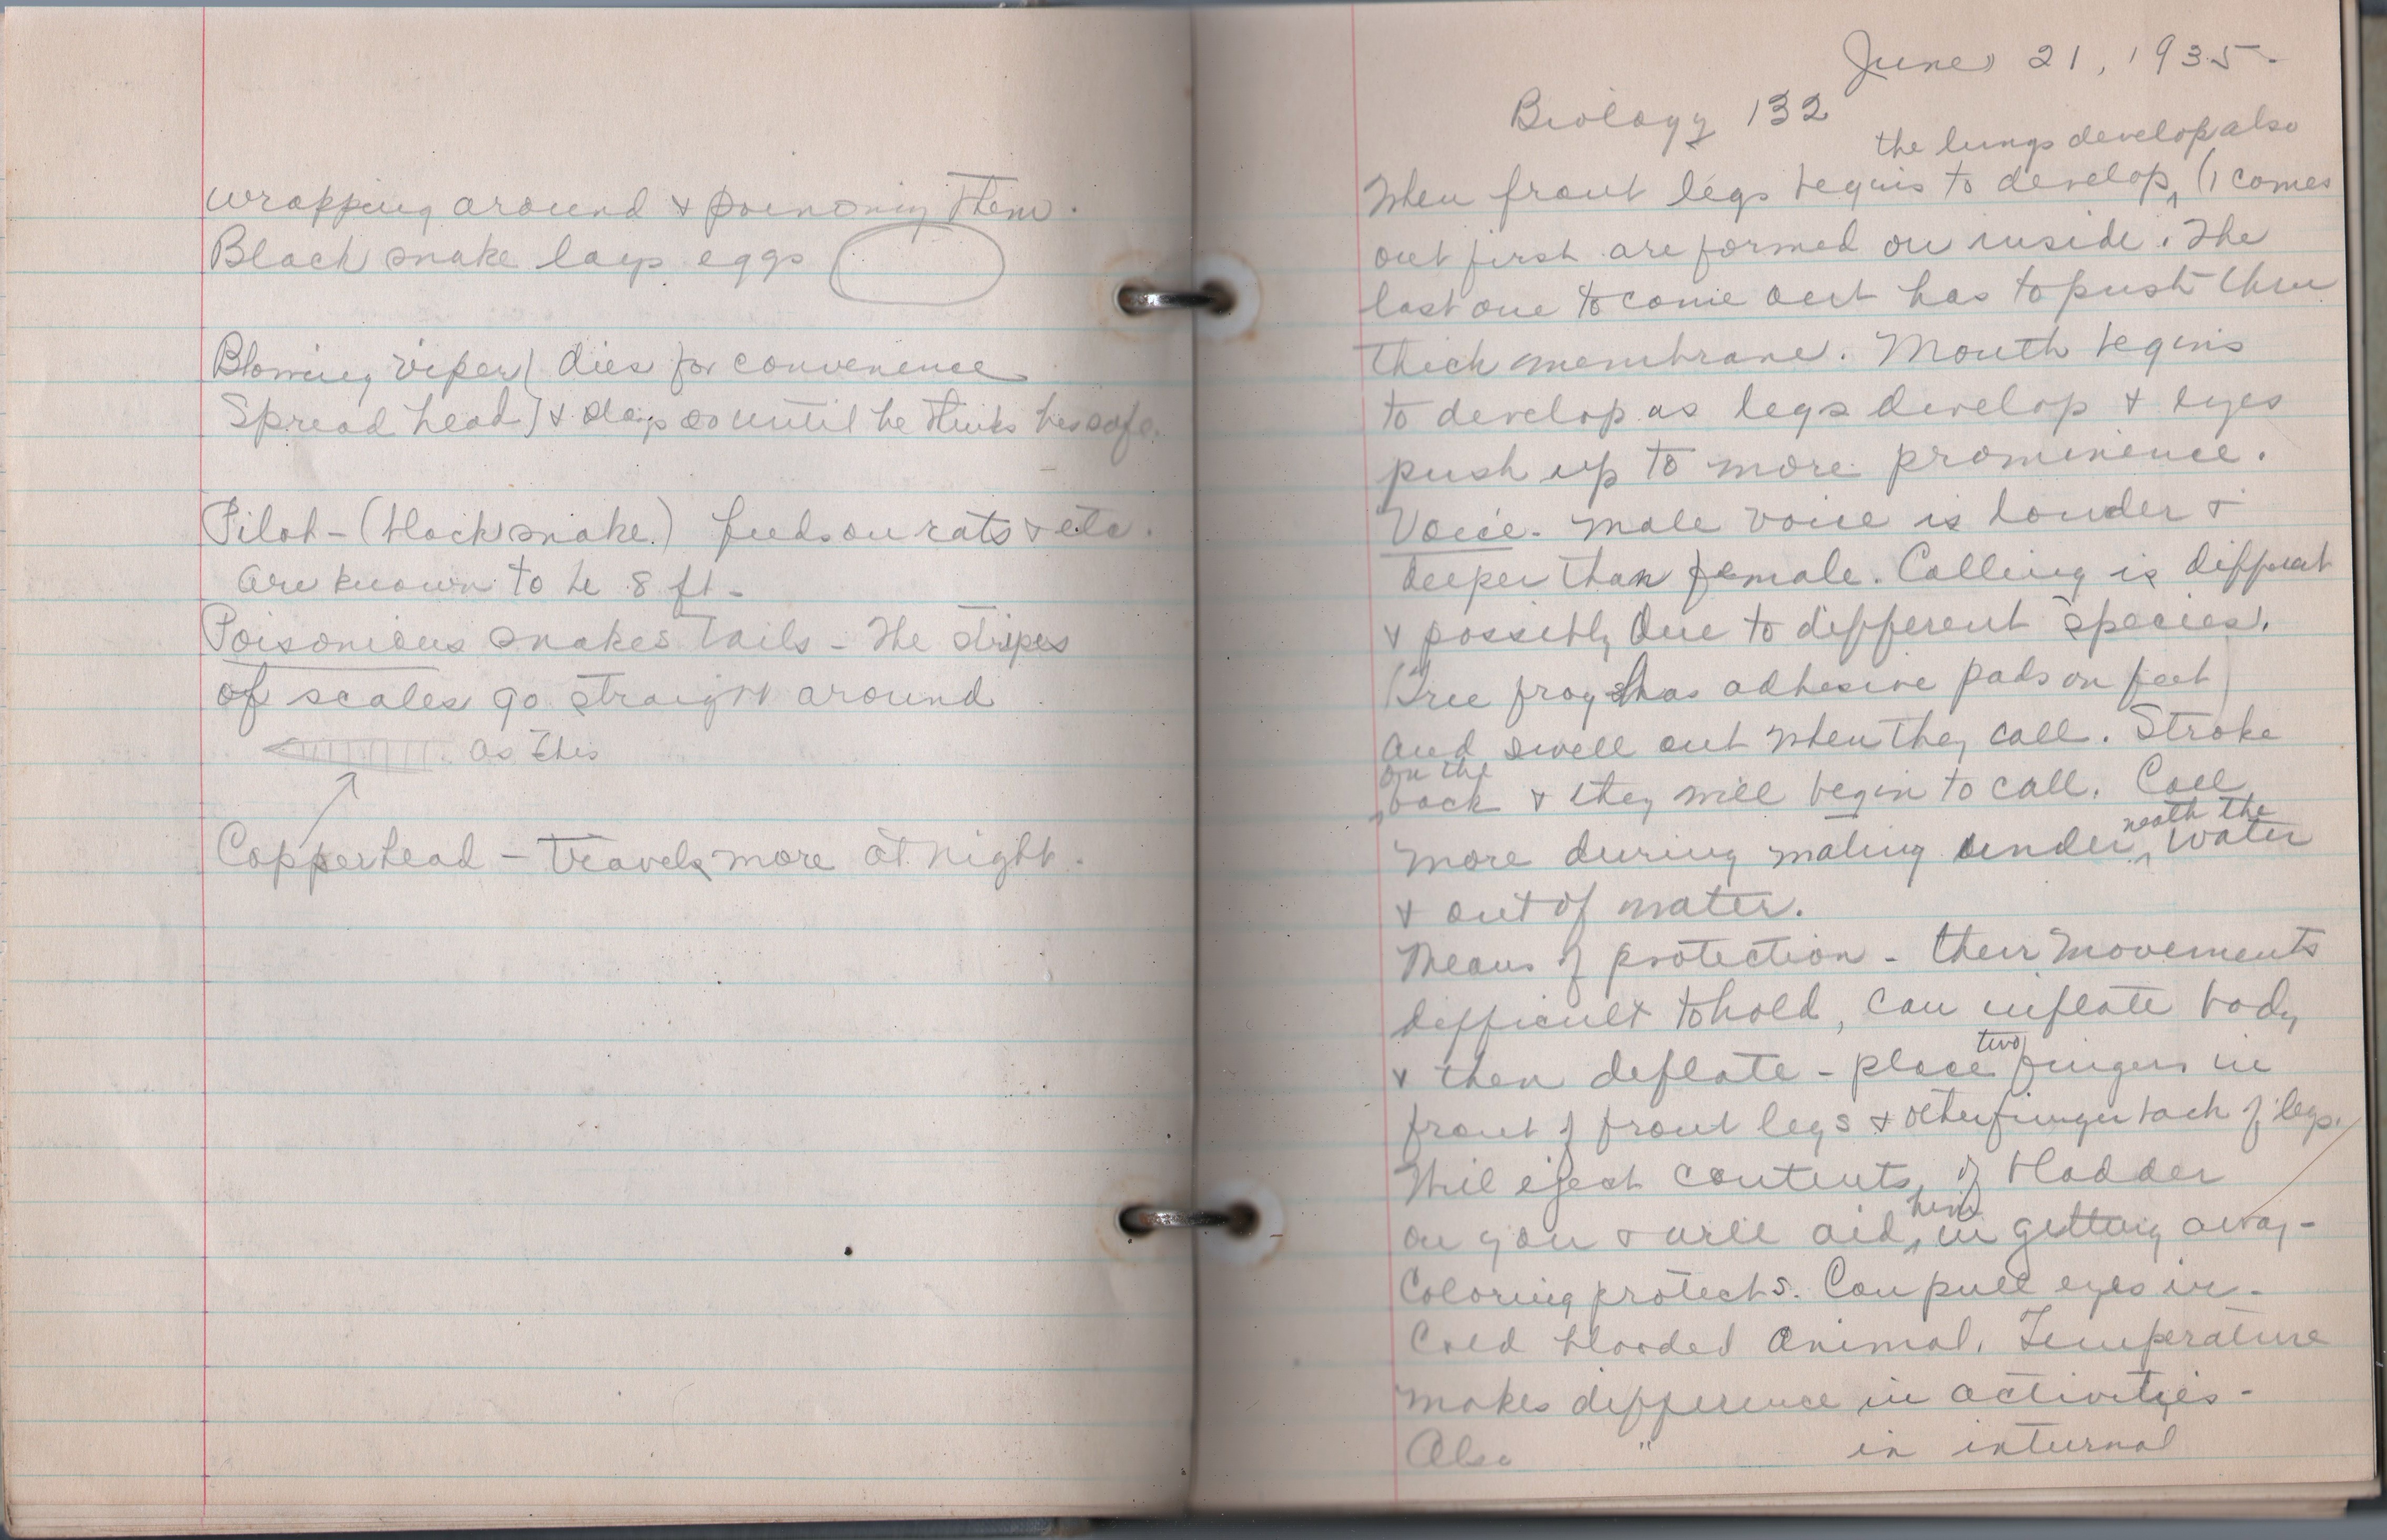 wrapping around & poisoning them.
Black snake lays eggs
Blowing viper) dies for convenience
Spread head) & stays so until he thinks hes safe.
Pilot - (black snake.) feeds on rats & etc.
are known to be 8 ft -
Poisonious snakes Tails - The stripes
of scales go straight around
as this
Copperhead - travels more at night.
June 21, 1935.
Biology 132
the lungs develop also
When front legs begins to develop, (1 comes
out first are formed on inside. The
last one to come out has to push thru
thick membrane. Mouth begins
to develop as legs develop & eyes
push up to more prominence.
Voice - male voice is louder &
deeper than female. Calling is different
& possibly due to different species.
(Tree frog has adhesive pads on feet)
and swell out when they call. Stroke
on the
back & they will begin to call. Call
neath the
more during mating under water
& out of water.
Means of protection - their movements
difficult to hold, can inflate body
two
& then deflate - place fingers in
front of front legs & other finger back of legs.
Will eject contents of bladder
him
on you & will aid in getting away -
Coloring protects. Can pull eyes in -
Cold blooded animal. Temperature
makes difference in activities -
Also " in internal